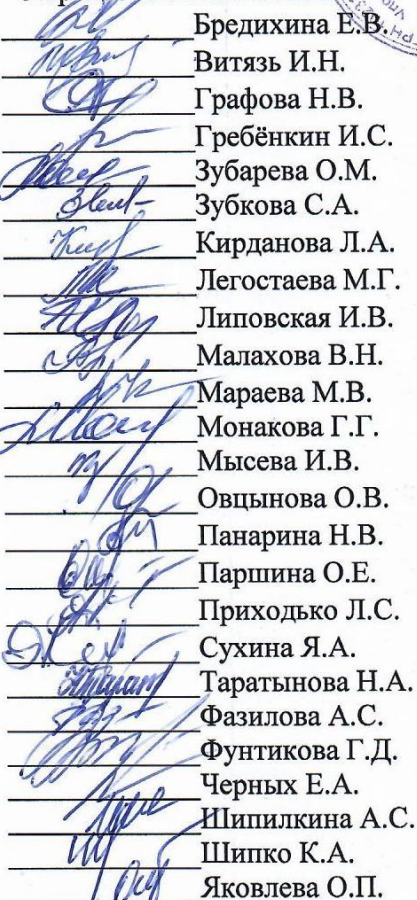 Бредихина Е.В.
Витязь И.Н.
Графова Н.В.
Гребёнкин И.С.
Зубарева О.М.
Зубкова С.А.
Кирданова Л.А.
Легостаева М.Г.
Липовская И.В.
Малахова В.Н.
Мараева М.В.
Монакова Г.Г.
Мысева И.В.
Овцынова О.В.
Панарина Н.В.
Паршина О.Е.
Приходько Л.С.
Сухина Я.А.
Таратынова Н.А.
Фазилова А.С.
Фунтикова Г.Д.
Черных Е.А.
Шипилкина А.С.
Шипко К.А.
Яковлева О.П.